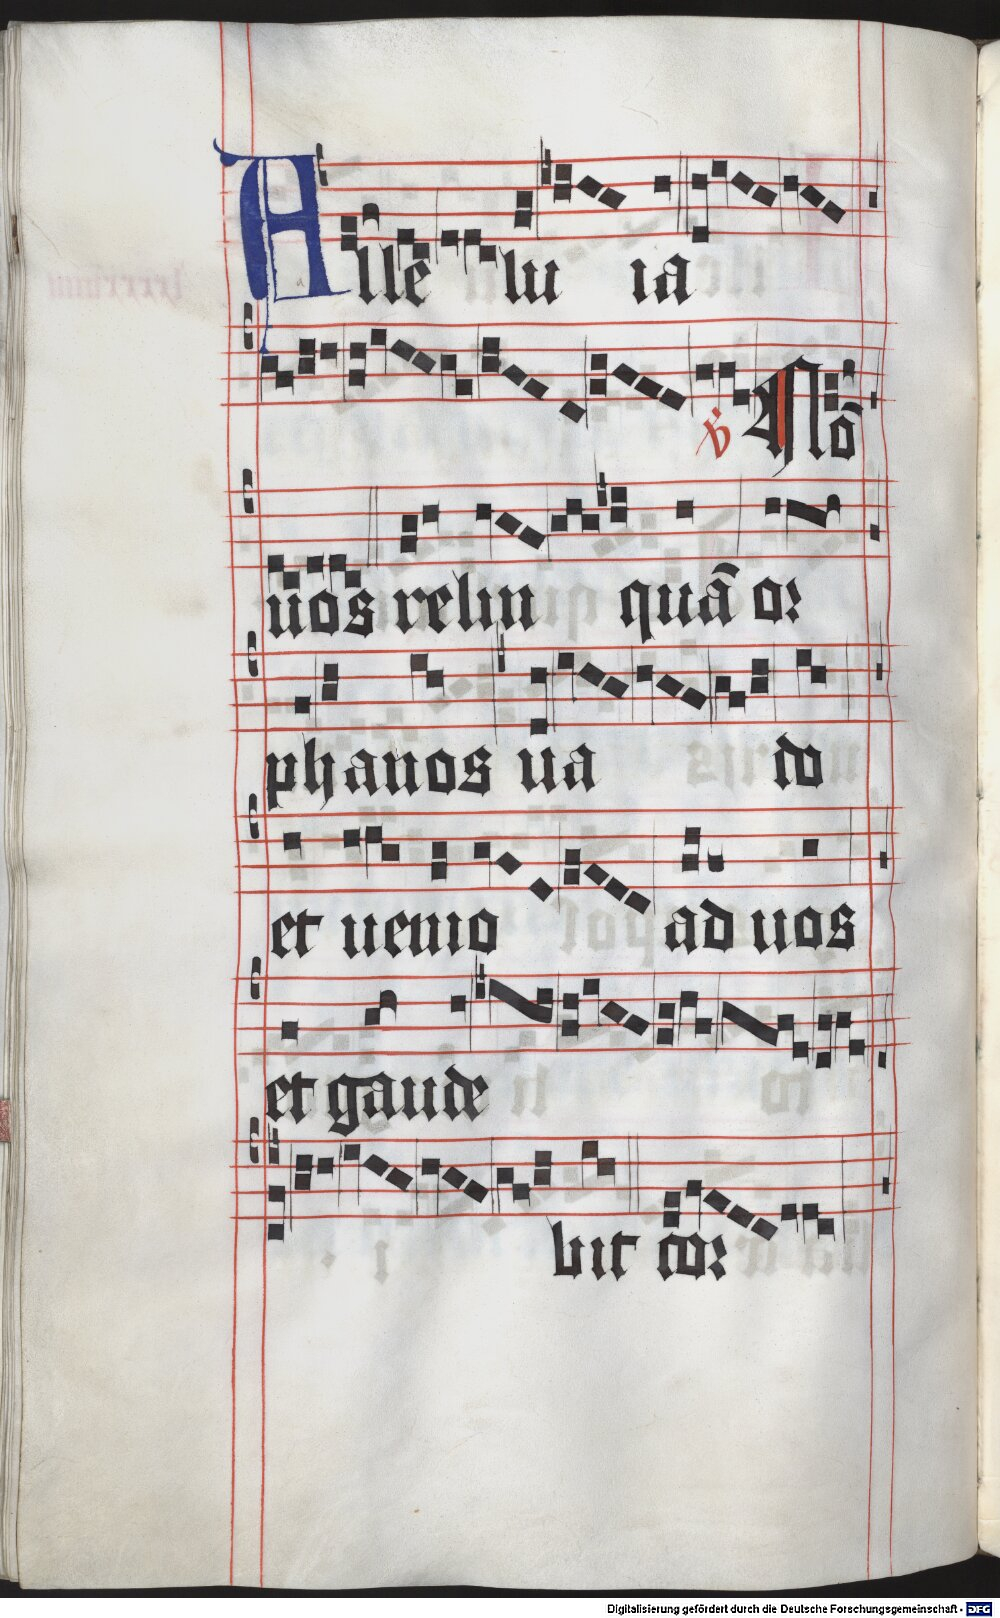 Alle lu ia
℣ Nō
uos relin quā or
phanos ua do
et uenio ad uos
et gaude
bit cor
Digitalisierung gefördert durch die Deutsche Forschungsgemeinschaft - DFG